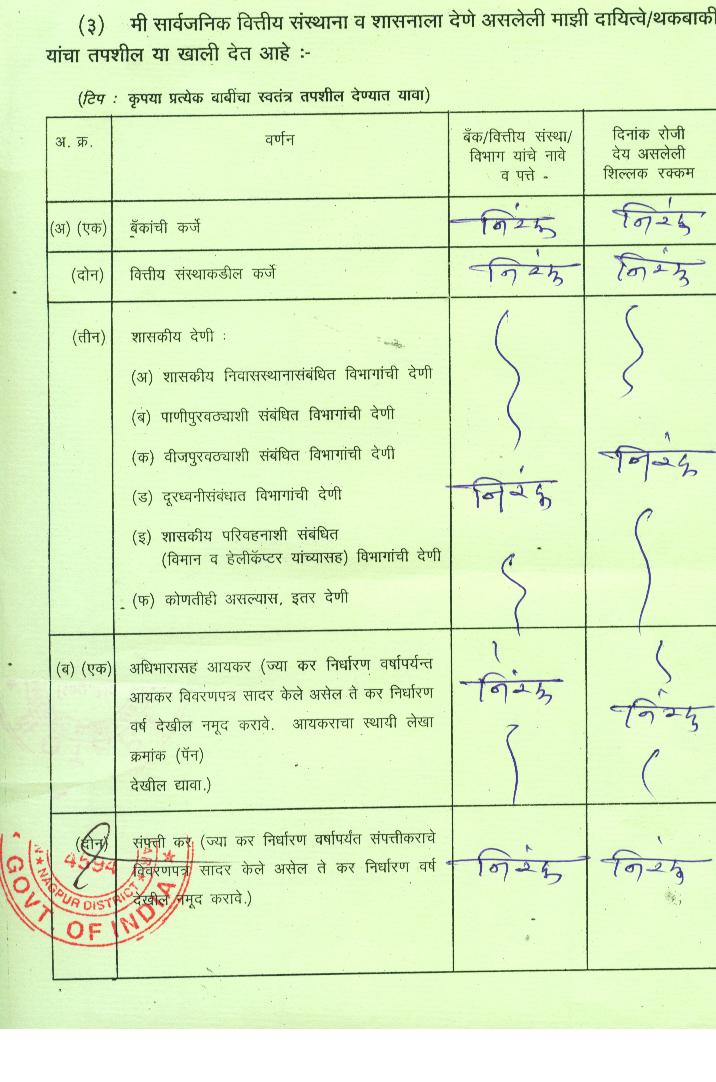 (३) मी सार्वजनिक वित्तीय संस्थाना व शासनाला देणे असलेली माझी दायित्वे/थकबाकी
यांचा तपशील या खाली देत आहे :-
(टिप : कृपया प्रत्येक बाबींचा स्वतंत्र तपशील देण्यात यावा)
अ. क्र.
वर्णन
बँक/वित्तीय संस्था/
विभाग यांचे नावे
व पत्ते -
दिनांक रोजी
देय असलेली
शिल्लक रक्कम
(अ) (एक) बँकांची कर्जे निरंक निरंक
(दोन) वित्तीय संस्थाकडील कर्जे निरंक निरंक
(तीन) शासकीय देणी :
(अ) शासकीय निवासस्थानासंबंधित विभागांची देणी
(ब) पाणीपुरवठ्याशी संबंधित विभागांची देणी
(क) वीजपुरवठ्याशी संबंधित विभागांची देणी निरंक
(ड) दूरध्वनीसंबधात विभागांची देणी निरंक
(इ) शासकीय परिवहनाशी संबंधित
(विमान व हेलीकॅप्टर यांच्यासह) विभागांची देणी
(फ) कोणतीही असल्यास, इतर देणी
(ब) (एक) अधिभारासह आयकर (ज्या कर निर्धारण वर्षापर्यन्त
आयकर विवरणपत्र सादर केले असेल ते कर निर्धारण निरंक
वर्ष देखील नमूद करावे. आयकराचा स्थायी लेखा निरंक
क्रमांक (पॅन)
देखील द्यावा.)
(दोन) संपत्ती कर (ज्या कर निर्धारण वर्षापर्यंत संपत्तीकराचे
विवरणपत्र सादर केले असेल ते कर निर्धारण वर्ष निरंक निरंक
देखील नमूद करावे.)
4594
NAGPUR DISTRICT
GOVT. OF INDIA